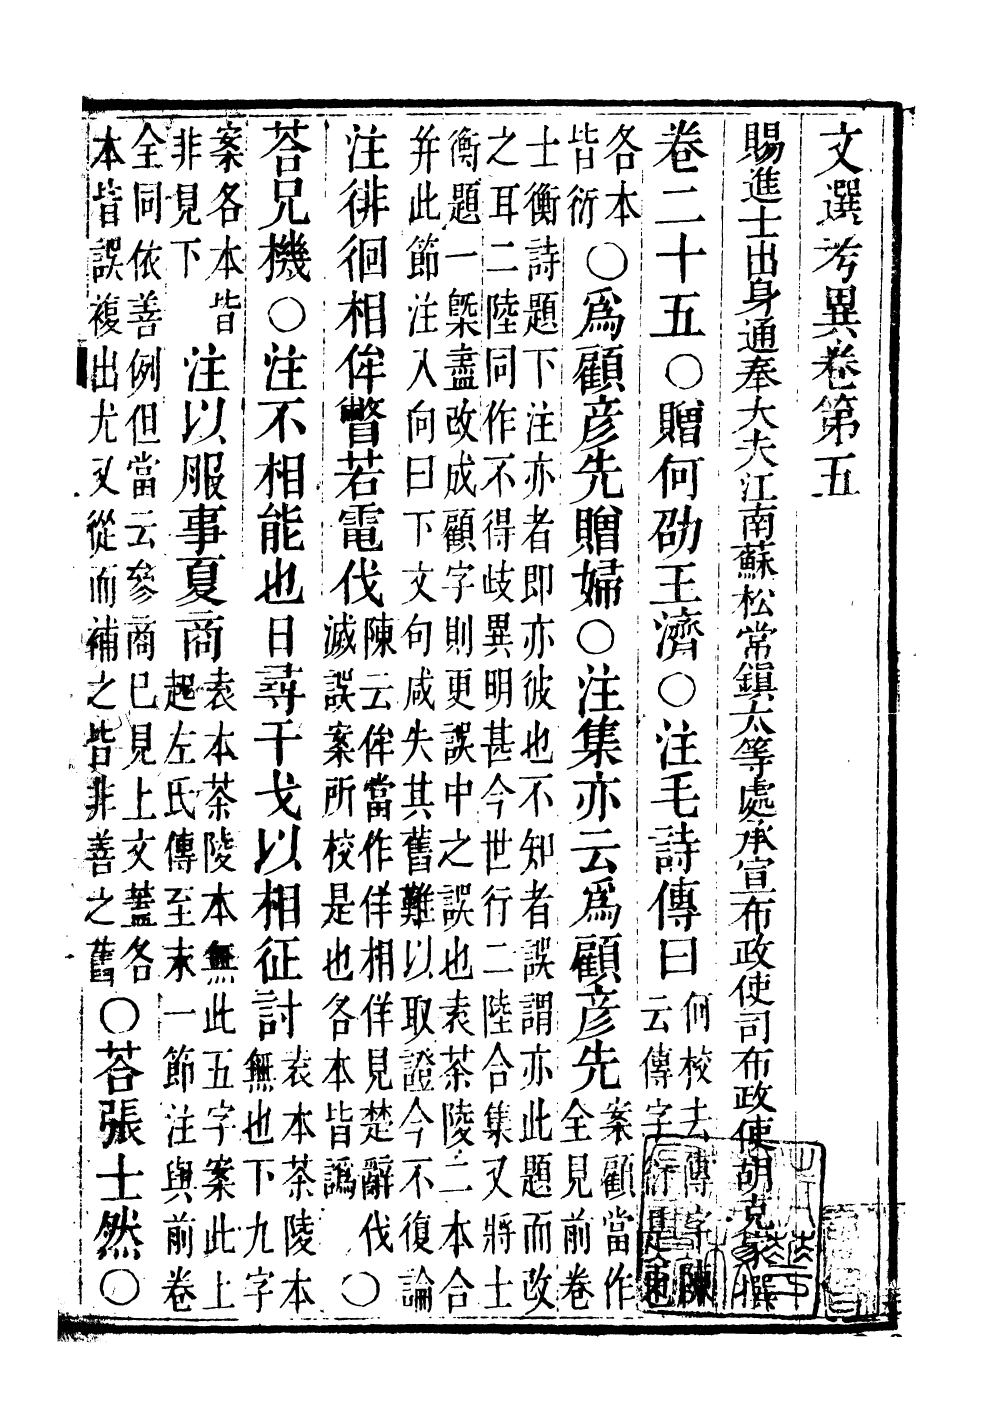 文選考異卷第五
賜進士出身通奉大夫江南蘇松常鎮太等處承宣布政使司布政使胡克家撰
卷二十五○贈何劭王濟○注毛詩傳曰何校去傳字陳云傳字衍是也
各本皆衍○爲顧彥先贈婦○注集亦云爲顧彥先案顧當作全見前卷
士衡詩題下注亦者即亦彼也不知者誤謂亦此題而改
之耳二陸同作不得歧異明甚今世行二陸合集又將士
衡題一槩盡改成顧字則更誤中之誤也袁茶陵二本合
并此節注入向曰下文句咸失其舊難以取證今不復論
注徘徊相侔瞥若電伐陳云侔當作佯相佯見楚辭伐滅誤案所校是也各本皆譌○
荅兄機○注不相能也日尋干戈以相征討袁本茶陵本無也下九字
案各本皆非見下注以服事夏商袁本茶陵本無此五字案此上起左氏傳至末一節注與前卷
全同依善例但當云參商已見上文蓋各本皆誤複出尤又從而補之皆非善之舊○荅張士然○